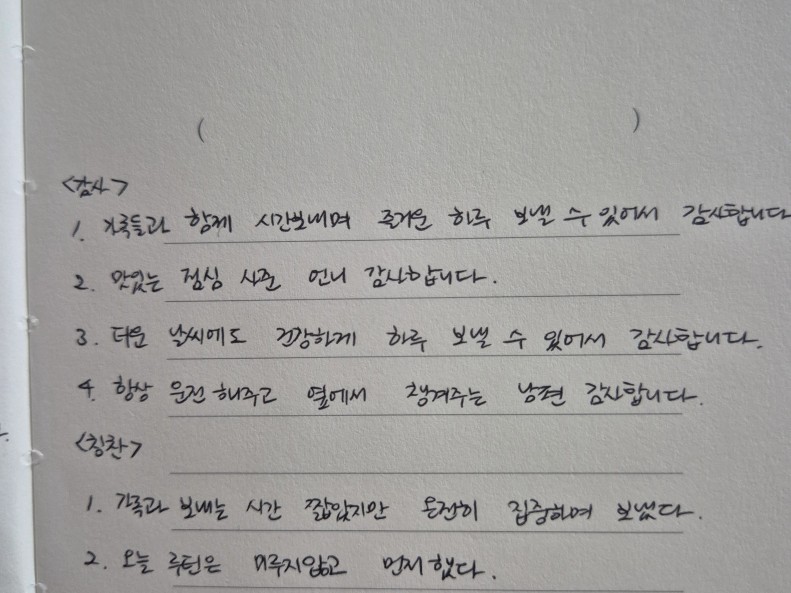 ( )
<감사>
1. 가족들과 함께 시간보내며 즐거운 하루 보낼 수 있어서 감사합니다
2. 맛있는 점심 사준 언니 감사합니다.
3. 더운 날씨에도 건강하게 하루 보낼 수 있어서 감사합니다.
4. 항상 운전해주고 옆에서 챙겨주는 남편 감사합니다.
<칭찬>
1. 가족과 보내는 시간 짧았지만 온전히 집중하여 보냈다.
2. 오늘 루틴은 미루지않고 먼저했다.